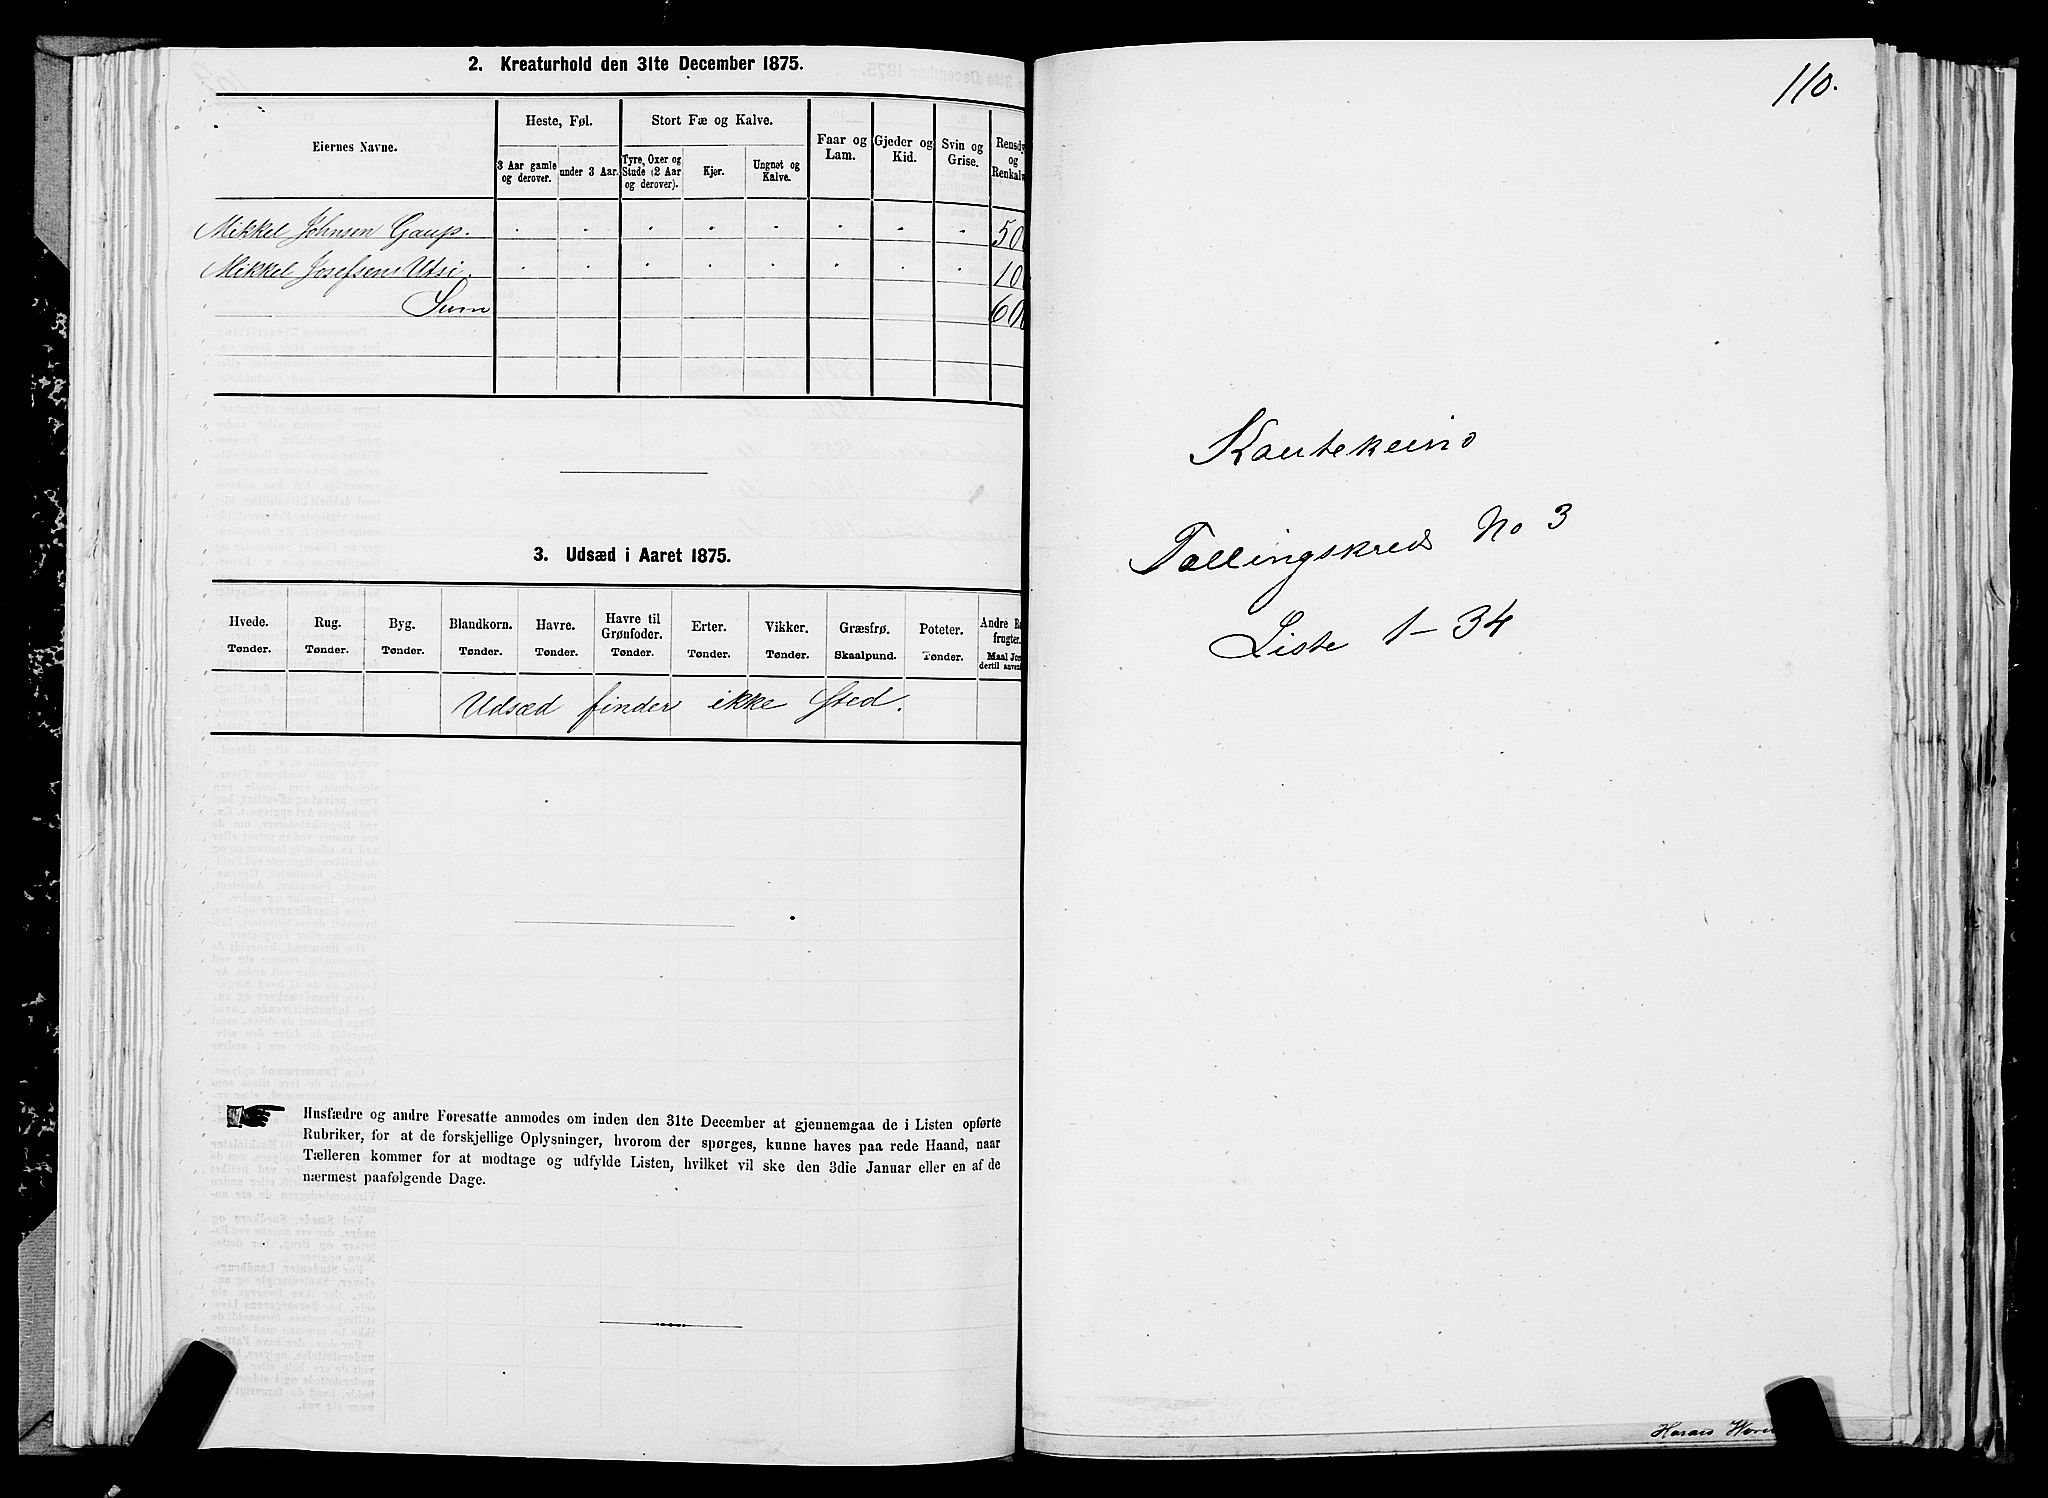 2. Kreaturhold den 31te December 1875.
Eiernes Navne.
Heste, Føl.
3 Aar gamle og derover.
under 3 Aar.
Stort Fæ og Kalve.
Tyre, Oxer og Stude (2 Aar og derover).
Kjør.
Ungnøt og Kalve.
Faar og Lam.
Gjeder og Kid.
Svin og Grise.
Rensdy
og
Renkalv
Mikkel Johnsen Gaup. " " " " " " " " 50
Mikkel Josefsens Utsi. " " " " " " " " 10
Sum 60
3. Udsæd i Aaret 1875.
Hvede. Tønder.
Rug. Tønder.
Byg. Tønder.
Blandkorn. Tønder.
Havre. Tønder.
Havre til Grønfoder. Tønder.
Erter. Tønder.
Vikker. Tønder.
Græsfrø. Skaalpund.
Poteter. Tønder.
Andre Ro
frugter.
Maal Jor
dertil anven
Udsæd finder ikke Sted.
Husfædre og andre Foresatte anmodes om inden den 31te December at gjennemgaa de i Listen opførte
Rubriker, for at de forskjellige Oplysninger, hvorom der spørges, kunne haves paa rede Haand, naar
Tælleren kommer for at modtage og udfylde Listen, hvilket vil ske den 3die Januar eller en af de
nærmest paafølgende Dage.
110.
Kautekeino
Tællingskreds No 3
Liste 1-34